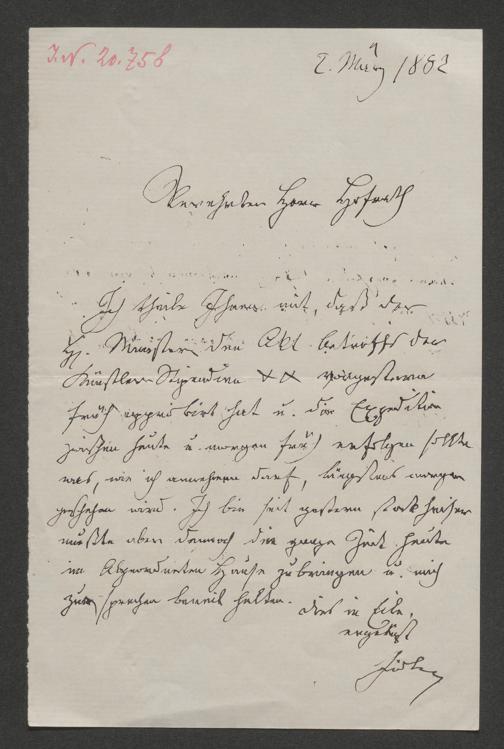 J.N. 20.758
2. März 1882
Verehrter Herr Hofrath
Ich theile Ihnen mit, daß der
H. Minister den Akt betreffs der
Künstler Stipendien vorgestern
früh approbirt hat u. die Expedition
zwischen heute u. morgen früh erfolgen sollte
was, wie ich annehmen darf, längstens morgen
geschehen wird. Ich bin seit gestern stockheiser
mußte aber dennoch die ganze Zeit heute
im Abgeordneten Hause zubringen u. mich
zum sprechen bereit halten. Dies in Eile.
ergebenst